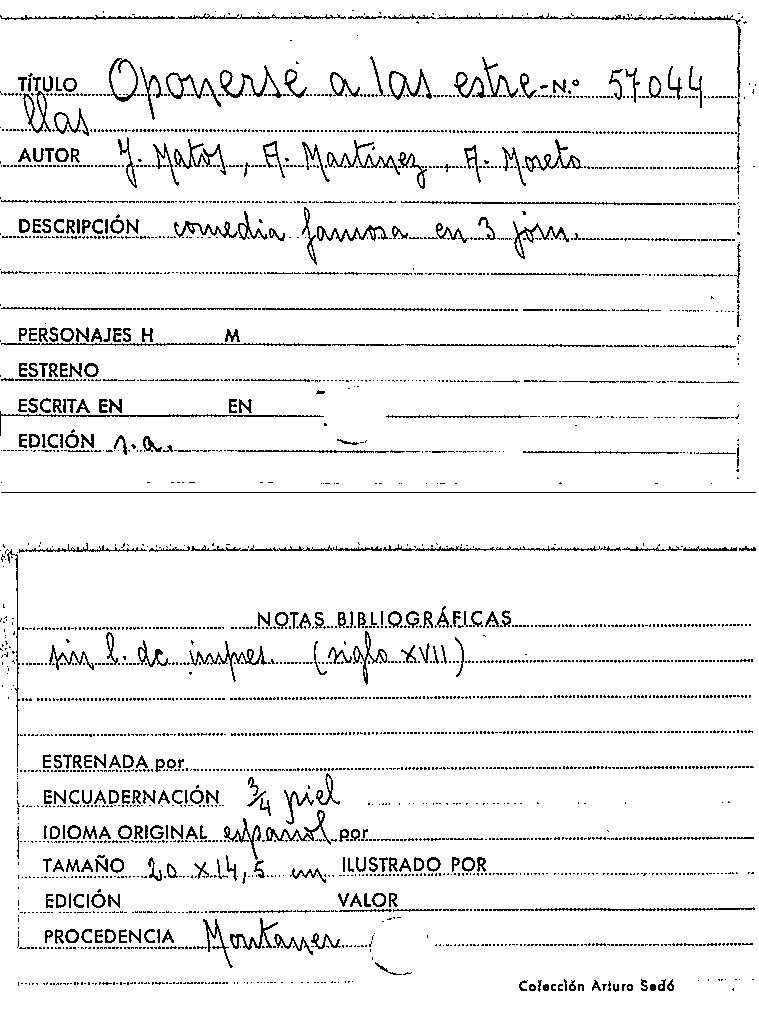 TÍTULO Oponerse a las estre- N.º 57044
llas
AUTOR J. Matos, A. Martínez, A. Moreto
DESCRIPCIÓN comedia famosa en 3 jorn.
PERSONAJES H M
ESTRENO
ESCRITA EN EN
EDICIÓN s.a.
NOTAS BIBLIOGRÁFICAS
sin l. de impres. (siglo XVII)
ESTRENADA por
ENCUADERNACIÓN 3/4 piel
IDIOMA ORIGINAL español por
TAMAÑO 20 x 14,5 cm ILUSTRADO POR
EDICIÓN VALOR
PROCEDENCIA Montaner
Colección Arturo Sedó